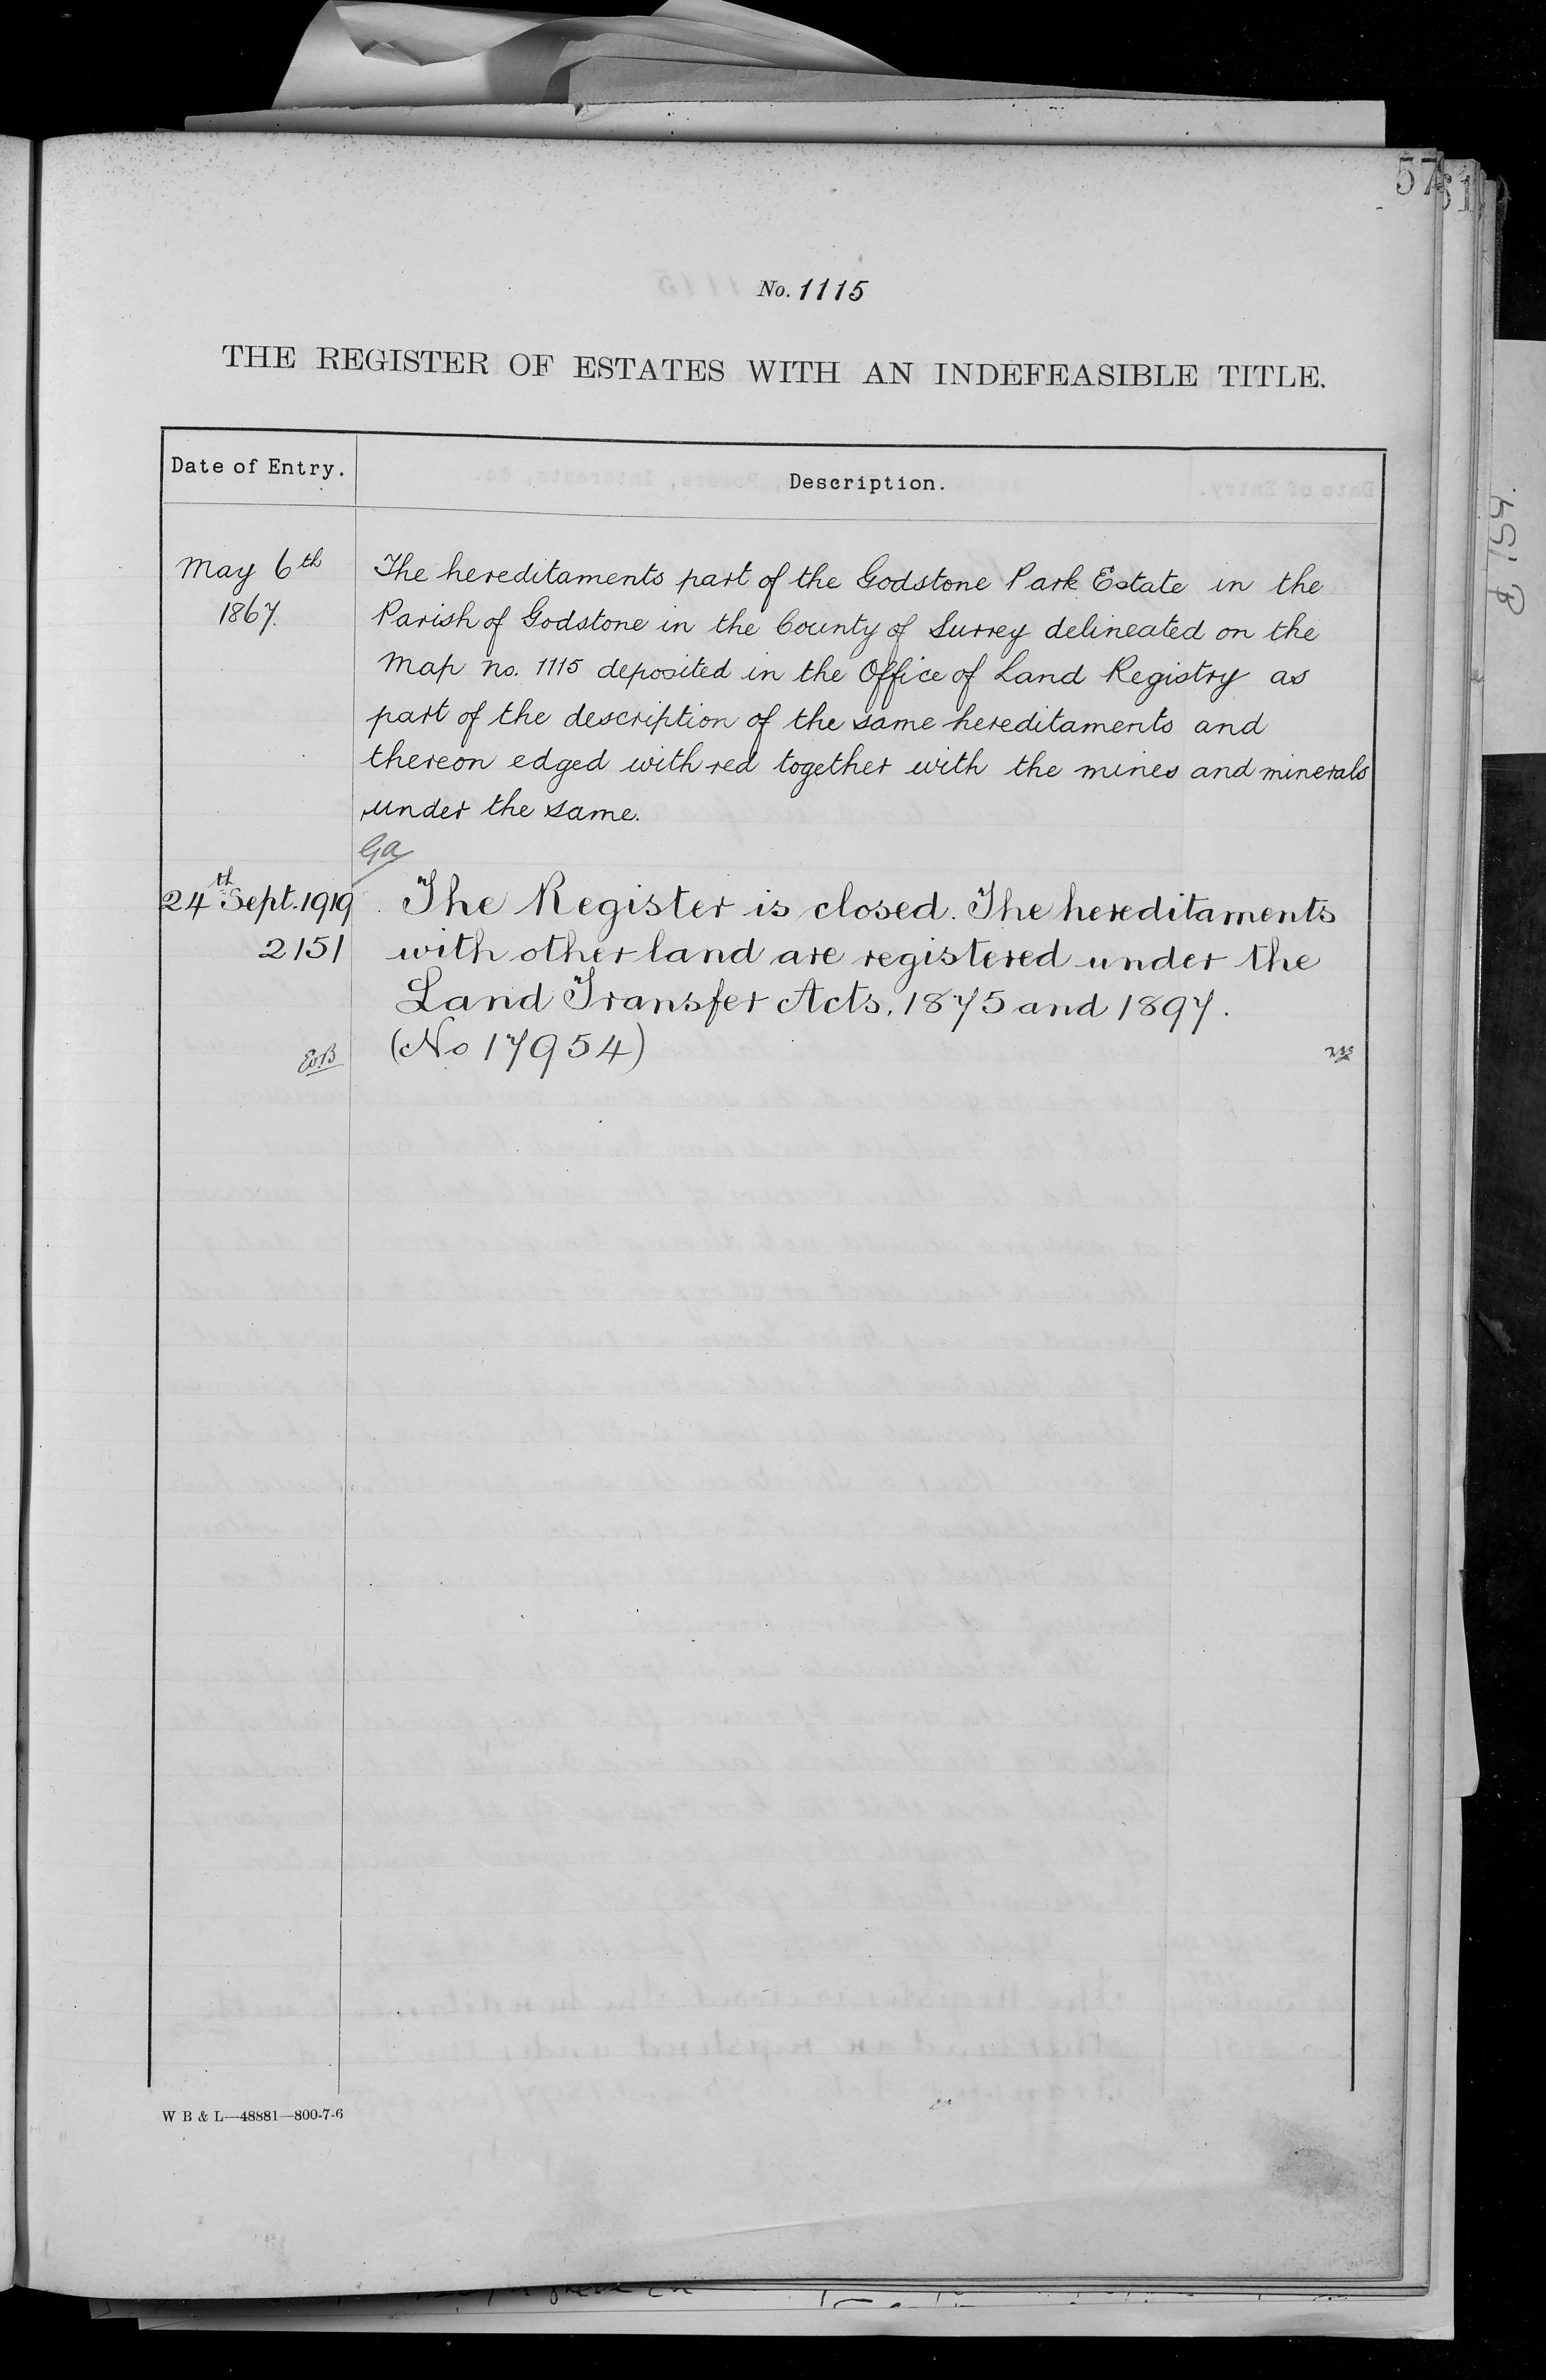 57
61
No. 1115
THE REGISTER OF ESTATES WITH AN INDEFEASIBLE TITLE.
Date of Entry.
Description.
May 6th
1867.
The hereditaments part of the Godstone Park Estate in the
Parish of Godstone in the County of Surrey delineated on the
Map no. 1115 deposited in the Office of Land Registry as
part of the description of the same hereditaments and
thereon edged with red together with the mines and minerals
under the same.
GA
24th Sept. 1919
2151
The Register is closed. The hereditaments
with other land are registered under the
Land Transfer Acts, 1875 and 1897.
(No 17954)
W B & L—48881—800-7-6